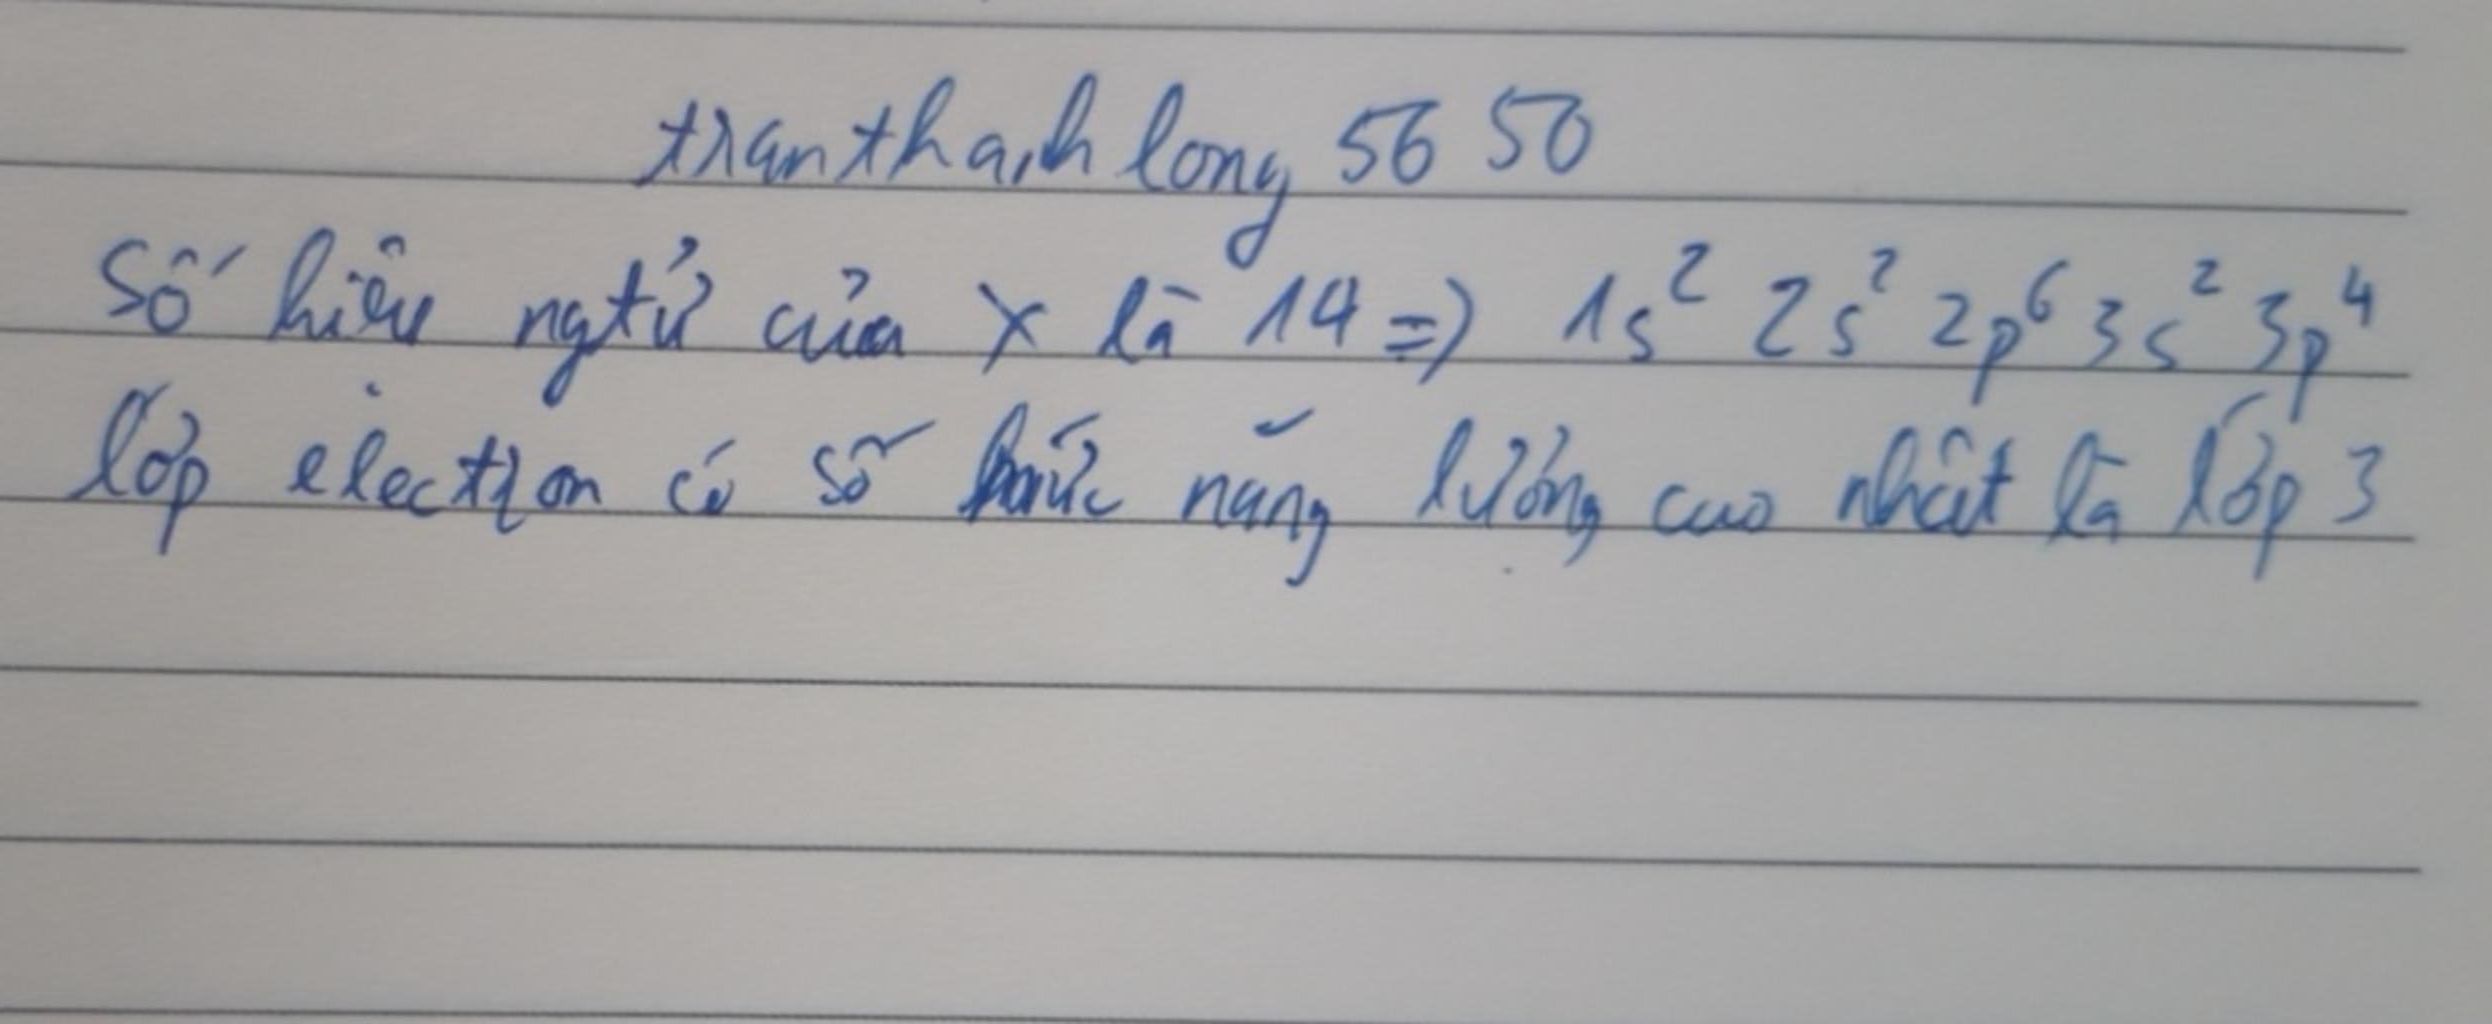 tran thanh long 56 50
Số hiệu ngtử của X là 14 => 1s² 2s² 2p⁶ 3s² 3p⁴
lớp electron có số mức năng lượng cao nhất là lớp 3